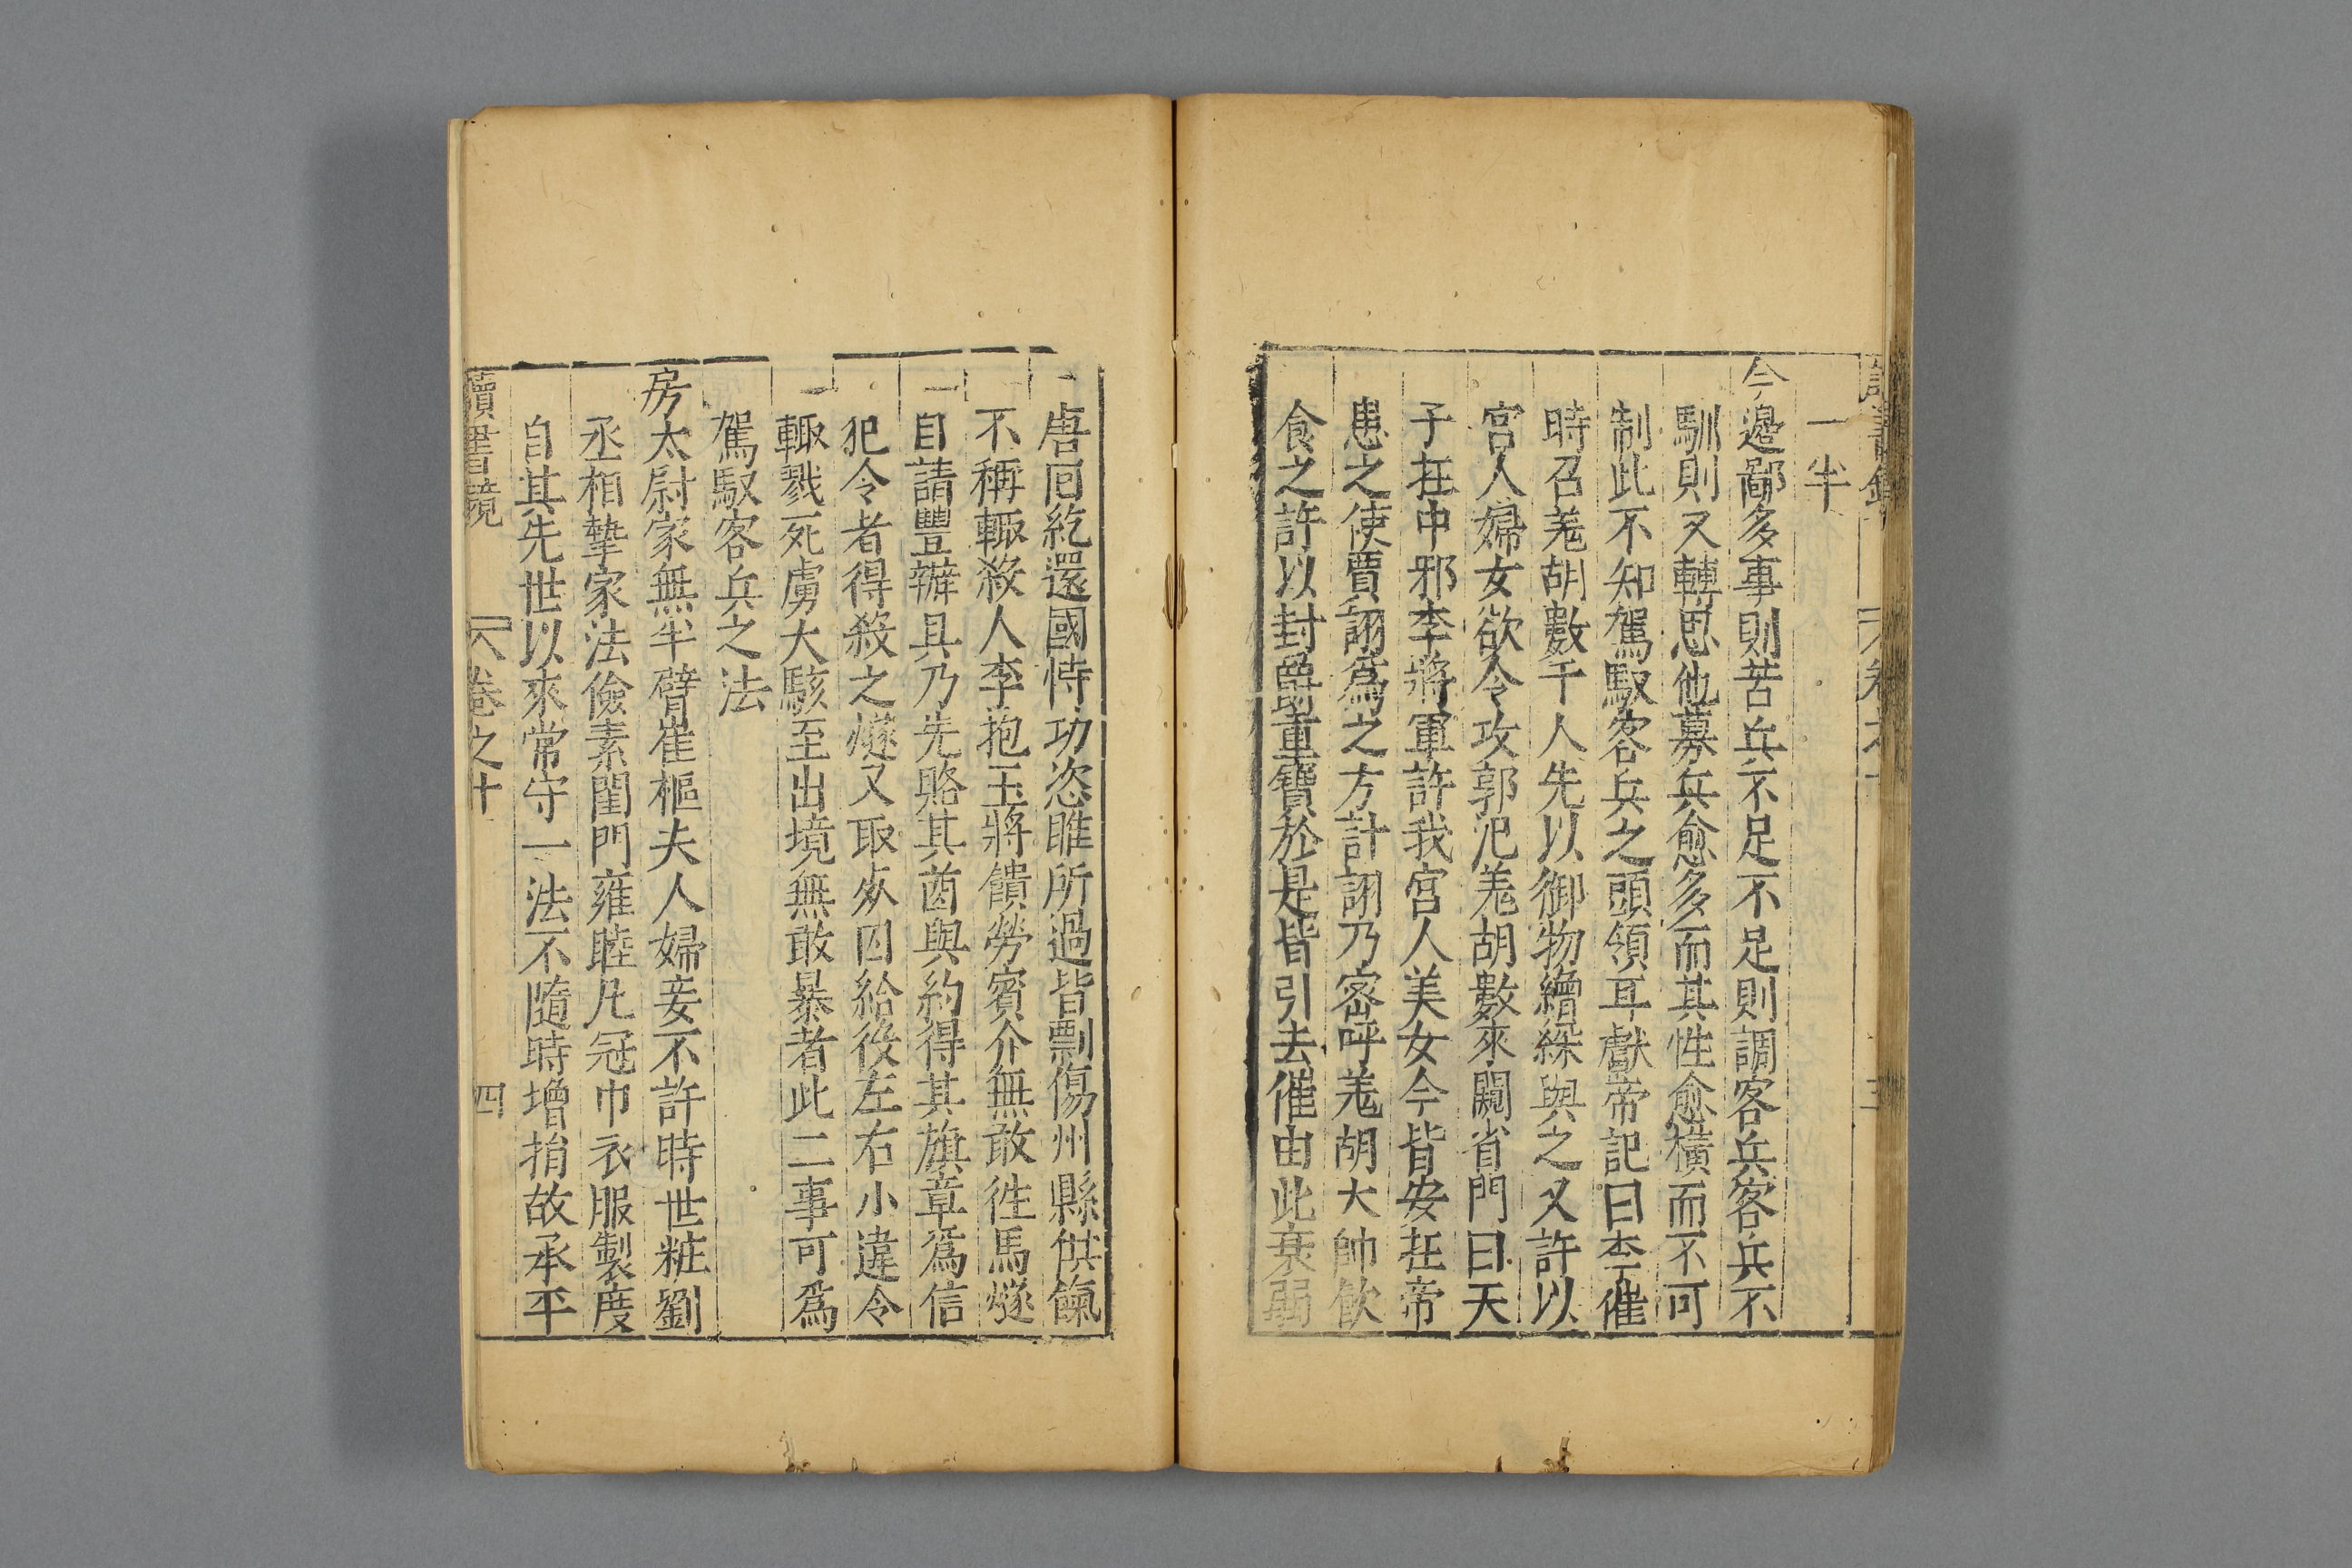 一半
今邉鄙多事則苦兵不足不足則調客兵客兵不
馴則又轉思他募兵愈多而其性愈橫而不可
制此不知駕馭客兵之頭領耳獻帝記曰李傕
時召羗胡數千人先以御物繒綵與之又許以
宮人婦女欲令攻郭汜羗胡數來闚省門曰天
子在中邪李將軍許我宮人美女今皆安在帝
患之使賈詡爲之方計詡乃密呼羗胡大帥飲
食之許以封爵重寶於是皆引去傕由此衰弱
唐囘紇還國恃功恣睢所過皆剽傷州縣供餼
不稱輒殺人李抱玉將饋勞賓介無敢徃馬燧
自請豐辦具乃先賂其酋與約得其旗章爲信
犯令者得殺之燧又取死囚給役左右小違令
輒戮死虜大駭至出境無敢暴者此二事可爲
駕馭客兵之法
房太尉家無半臂崔樞夫人婦妾不許時世粧劉
丞相摯家法儉素閨門雍睦凢冠巾衣服製度
自其先世以來常守一法不隨時增捐故承平
讀書鏡 卷之十 四